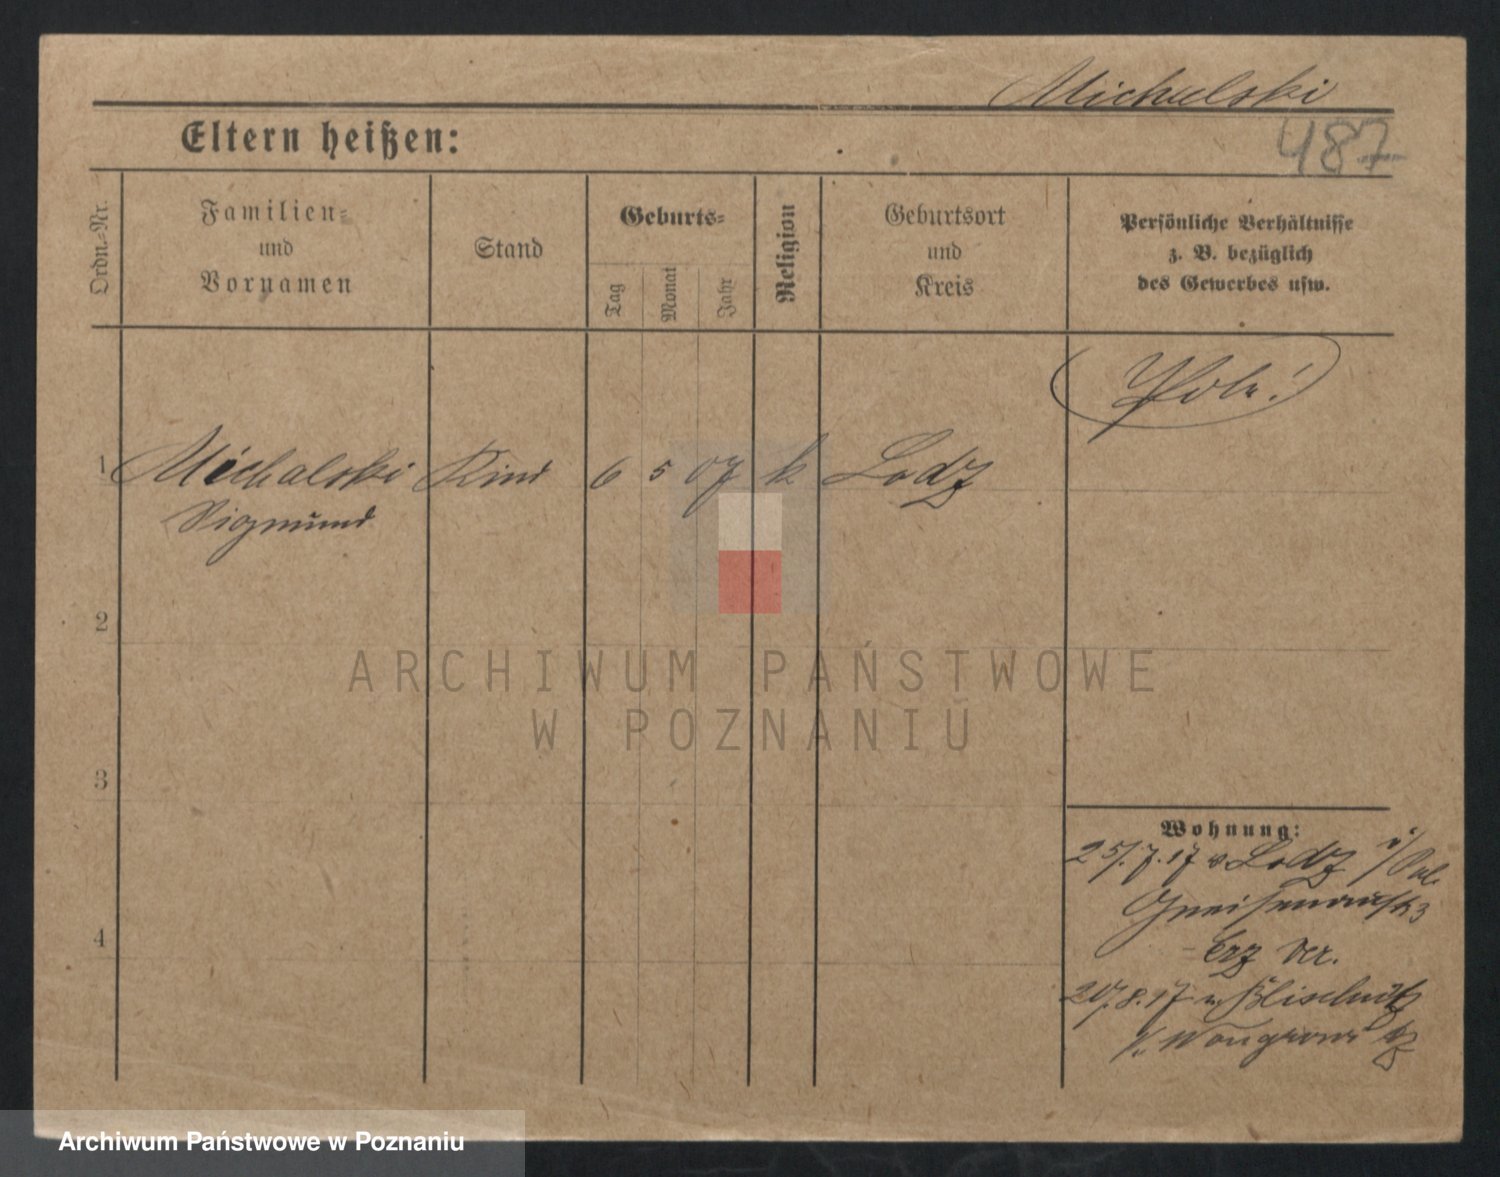 Michalski
Eltern heißen:
487
Ordn.-Nr.
Familien-
und
Vornamen
Stand
Geburts-
Tag
Monat
Jahr
Religion
Geburtsort
und
Kreis
Persönliche Verhältnisse
z. B. bezüglich
des Gewerbes usw.
Pole!
1 Michalski Kind 6 5 07 k Lodz
Sigmund
2
3
4
Wohnung:
25/.7.17 v Lodz i/Pol.
Gneisenaustr 3
20/.8.17 n.
Wongrowitz
ARCHIWUM PAŃSTWOWE
W POZNANIU
Archiwum Państwowe w Poznaniu